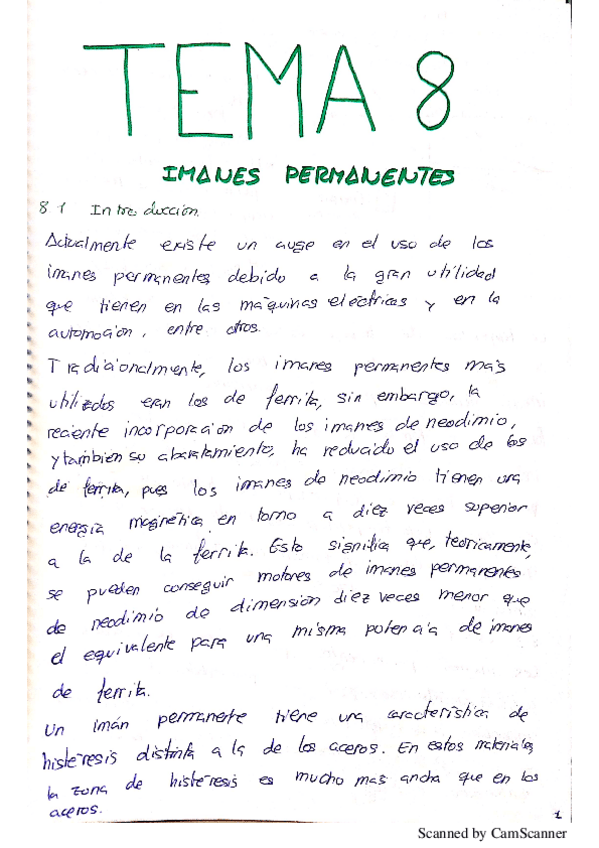 TEMA 8
IMANES PERMANENTES
8 1 Introducción.
Actualmente existe un auge en el uso de los
imanes permanentes debido a la gran utilidad
que tienen en las máquinas eléctricas y en la
automoción, entre otros.
Tradicionalmente, los imanes permanentes más
utilizados eran los de ferrita, sin embargo, la
reciente incorporación de los imanes de neodimio,
y tambien su abaratamiento, ha reducido el uso de los
de ferrita, pues los imanes de neodimio tienen una
energía magnética en torno a diez veces superior
a la de la ferrita. Esto significa que, teóricamente,
se pueden conseguir motores de imanes permanentes
de neodimio de dimensión diez veces menor que
el equivalente para una misma potencia de imanes
de ferrita.
Un imán permanente tiene una característica de
histéresis distinta a la de los aceros. En estos materiales
la zona de histéresis es mucho mas ancha que en los
aceros.
1
Scanned by CamScanner